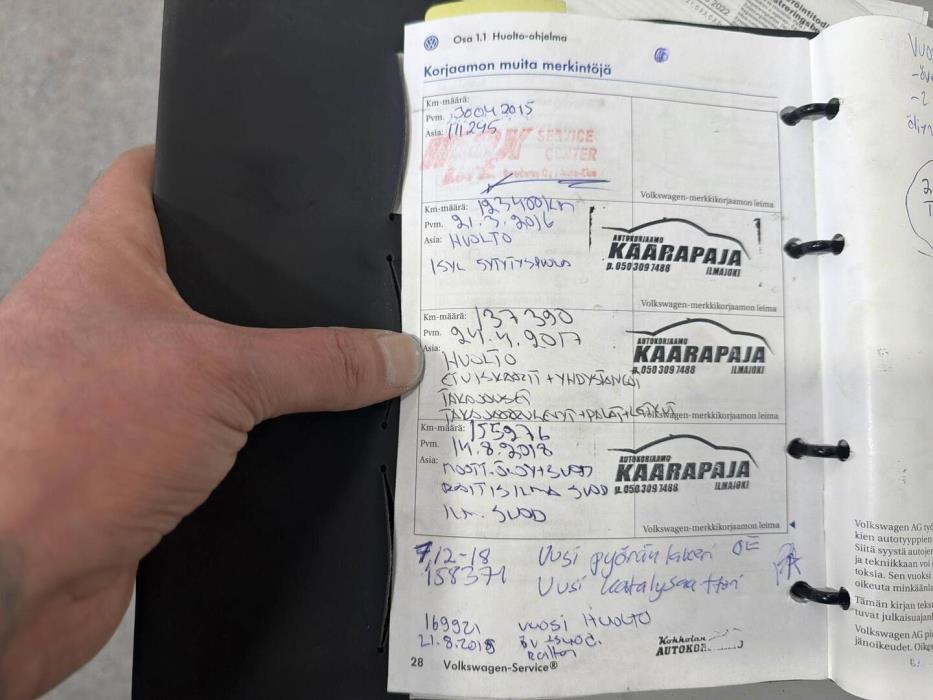 Osa 1.1 Huolto-ohjelma
Korjaamon muita merkintöjä
Km-määrä:
Pvm. 30.04.2015
Asia: 111245
SERVICE
CENTER
Volkswagen-merkkikorjaamon leima
Km-määrä: 123400km
Pvm. 21.3.2016
Asia: HUOLTO
1SYL SYTYTYSPUOLA
AUTOKORJAAMO
KAARAPAJA
p.050 309 7488 ILMAJOKI
Volkswagen-merkkikorjaamon leima
Km-määrä: 137390
Pvm. 24.4.2017
Asia:
HUOLTO
ETUISKARIT + YHDYSTANGOT
TAKAJOUSET
TAKAJARRULEVYT+PALAT+LETKUT
AUTOKORJAAMO
KAARAPAJA
p.050 309 7488 ILMAJOKI
Volkswagen-merkkikorjaamon leima
Km-määrä: 155976
Pvm. 14.8.2018
Asia: MOOTT.ÖLJY+SUOD
RAITISILMA SUOD
ILM. SUOD
AUTOKORJAAMO
KAARAPAJA
p.050 309 7488 ILMAJOKI
Volkswagen-merkkikorjaamon leima
7/12-18 Uusi pyörän laakeri OE
158371 Uusi katalysaattori
169921 VUOSI HUOLTO
21.8.2019
Kokkolan
28 Volkswagen-Service®
Volkswagen AG
kien autotyyppien
Siitä syystä
ja tekniikkaan voi
toksia. Sen vuoksi
oikeuta
Tämän kirjan
tuvat
Volkswagen AG
jänoikeudet.